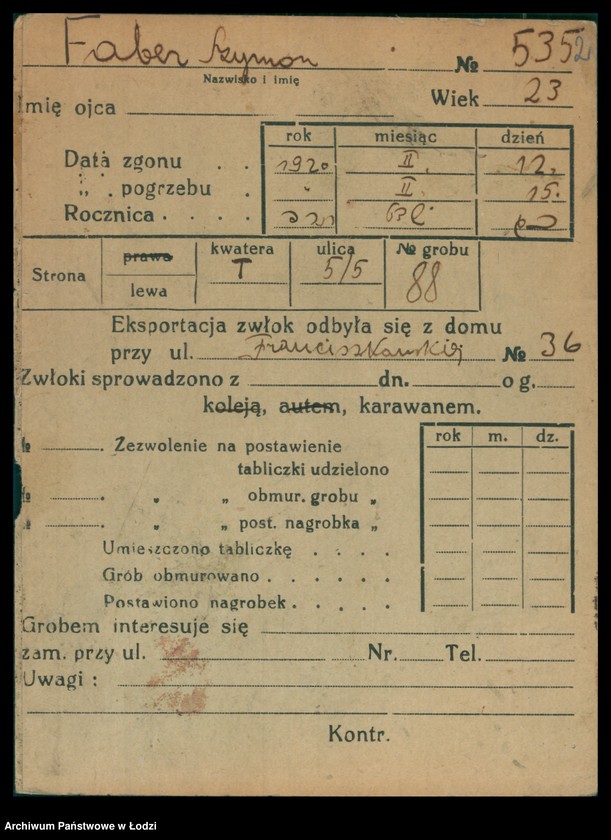 Faber Szymon № 5352
Nazwisko i imię
Imię ojca Wiek 23
rok miesiąc dzień
Data zgonu . . 1920 II. 12.
„ pogrzebu . „ II. 15.
Rocznica . . . .
Strona prawa lewa kwatera T ulica 5/5 № grobu 88
Eksportacja zwłok odbyła się z domu
przy ul. Franciszkańskiej № 36
Zwłoki sprowadzono z dn. o g.
koleją, autem, karawanem.
rok m. dz.
№ . Zezwolenie na postawienie
tabliczki udzielono
№ . „ „ obmur. grobu „
№ . „ „ post. nagrobka „
Umieszczono tabliczkę . . . .
Grób obmurowano . . . . . .
Postawiono nagrobek . . . .
Grobem interesuje się
zam. przy ul. Nr. Tel.
Uwagi :
Kontr.
Archiwum Państwowe w Łodzi